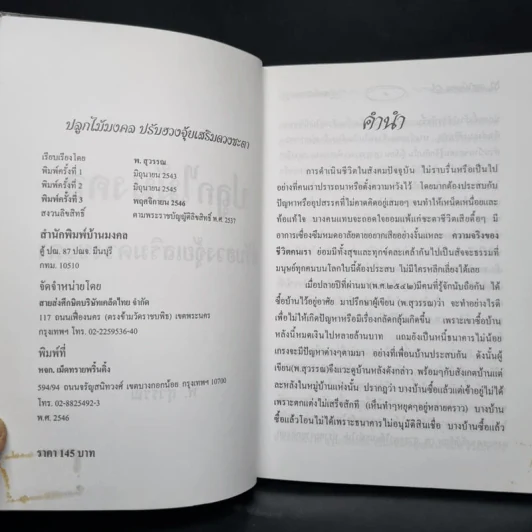 ปลูกไม้มงคล ปรับฮวงจุ้ยเสริมดวงชะตา
เรียบเรียงโดย พ. สุวรรณ
พิมพ์ครั้งที่ 1 มิถุนายน 2543
พิมพ์ครั้งที่ 2 มิถุนายน 2545
พิมพ์ครั้งที่ 3 พฤศจิกายน 2546
สงวนลิขสิทธิ์ ตามพระราชบัญญัติลิขสิทธิ์ พ.ศ. 2537
สำนักพิมพ์บ้านมงคล
ตู้ ปณ. 87 ปณจ. มีนบุรี
กทม. 10510
จัดจำหน่ายโดย
สายส่งศึกษิตบริษัทเคล็ดไทย จำกัด
117 ถนนเฟื่องนคร (ตรงข้ามวัดราชบพิธ) เขตพระนคร
กรุงเทพฯ โทร. 02-2259536-40
พิมพ์ที่
หจก. เม็ดทรายพริ้นติ้ง
594/94 ถนนจรัญสนิทวงศ์ เขตบางกอกน้อย กรุงเทพฯ 10700
โทร. 02-8825492-3
พ.ศ. 2546
ราคา 145 บาท
คำนำ
การดำเนินชีวิตในสังคมปัจจุบัน ไม่ราบรื่นหรือเป็นไป
อย่างที่คนเราปรารถนาหรือตั้งความหวังไว้ โดยมากต้องประสบกับ
ปัญหาหรืออุปสรรคที่ไม่คาดคิดอยู่เสมอๆ จนทำให้เหน็ดเหนื่อยและ
ท้อแท้ใจ บางคนแทบจะถอดใจยอมแพ้แก่ชะตาชีวิตเสียดื้อๆ มี
อาการเซื่องซึมหมดอาลัยตายอยากเสียอย่างงั้นแหละ ความจริงของ
ชีวิตคนเรา ย่อมมีทั้งสุขและทุกข์คละเคล้ากันไปเป็นสัจจะธรรมที่
มนุษย์ทุกคนบนโลกใบนี้ต้องประสบ ไม่มีใครหลีกเลี่ยงได้เลย
เมื่อปลายปีที่ผ่านมา(พ.ศ.๒๕๔๒)มีคนที่รู้จักนับถือกัน ได้
ซื้อบ้านไว้อยู่อาศัย มาปรึกษาผู้เขียน(พ.สุวรรณ)ว่า จะทำอย่างไรดี
เพื่อไม่ให้เกิดปัญหาหรือมีเรื่องกลัดกลุ้มเกิดขึ้น เพราะเขาซื้อบ้าน
หลังนี้หมดเงินไปหลายล้านบาท แถมยังเป็นหนี้ธนาคารไม่น้อย
เกรงจะมีปัญหาต่างๆตามมา อย่างที่เพื่อนบ้านประสบกัน ดังนั้นผู้
เขียน(พ.สุวรรณ)จึงแวะดูบ้านหลังดังกล่าว พร้อมๆกับสังเกตบ้านแต่
ละหลังในหมู่บ้านแห่งนั้น ปรากฏว่า บางบ้านซื้อแล้วแต่เข้าอยู่ไม่ได้
เพราะตกแต่งไม่เสร็จสักที (เห็นทำๆหยุดๆอยู่หลายคราว) บางบ้าน
ซื้อแล้วโอนไม่ได้เพราะธนาคารไม่อนุมัติสินเชื่อ บางบ้านซื้อแล้ว